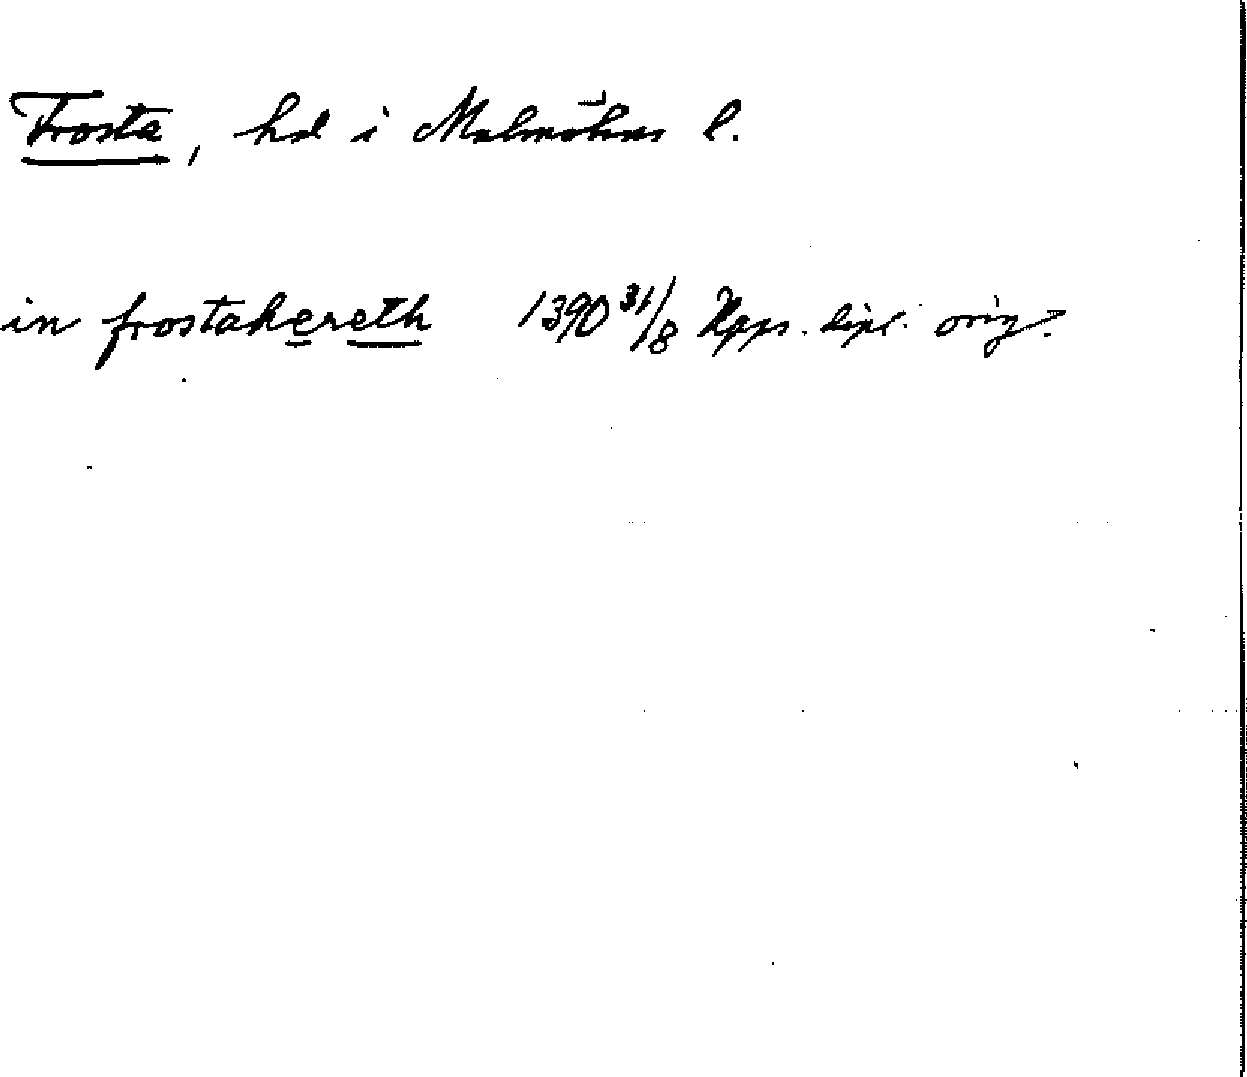 Frosta, hd i Malmöhus l.
in frostahereth 1390 31/8 Kpps. dipl. orig.